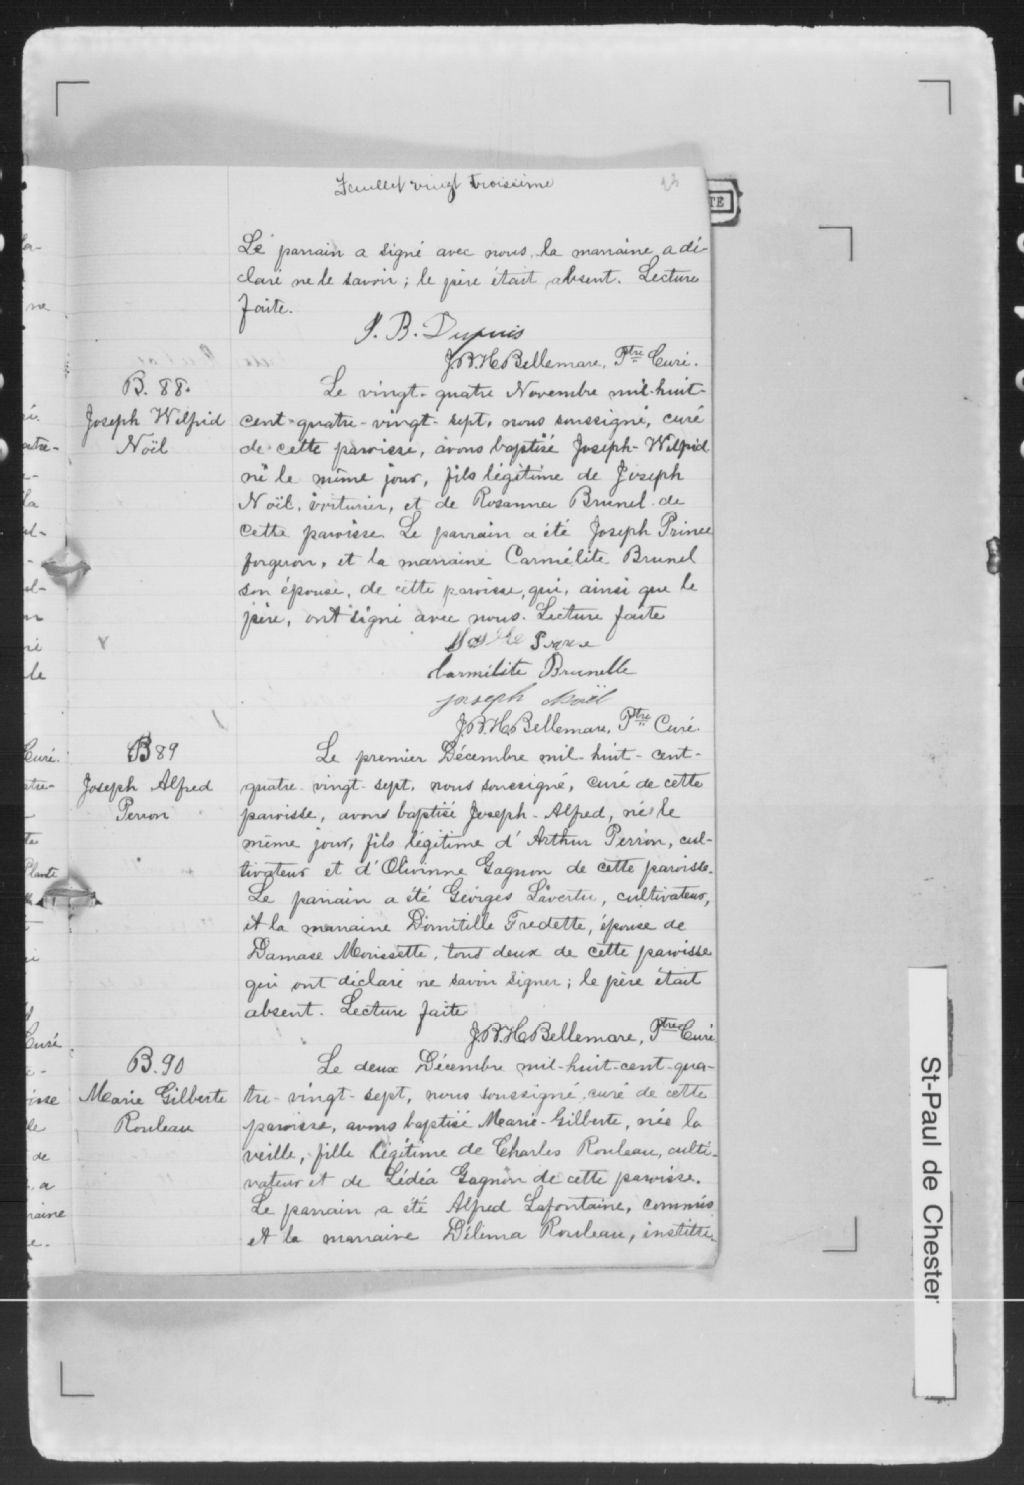 Feuillet vingt troisième
23
Le parrain a signé avec nous, la marraine a dé-
claré ne le savoir ; le père était absent. Lecture
faite.
J. B. Dupuis
J.B.H. Bellemare, Ptre Curé.
B. 88.
Joseph Wilfrid
Noël
Le vingt-quatre Novembre mil-huit-
cent-quatre-vingt-sept, nous soussigné, curé
de cette paroisse, avons baptisé Joseph-Wilfrid
né le même jour, fils légitime de Joseph
Noël, voiturier, et de Rosanna Brunel de
cette paroisse. Le parrain a été Joseph Prince
forgeron, et la marraine Carmélite Brunel
son épouse, de cette paroisse, qui, ainsi que le
père, ont signé avec nous. Lecture faite
Carmélite Brunelle
Joseph Noël
J.B.H. Bellemare, Ptre Curé.
B 89
Joseph Alfred
Perron
Le premier Décembre mil-huit-cent-
quatre-vingt-sept, nous soussigné, curé de cette
paroisse, avons baptisé Joseph-Alfred, né le
même jour, fils légitime d'Arthur Perron, cul-
tivateur et d'Olivinne Gagnon de cette paroisse.
Le parrain a été Georges Lavertu, cultivateur,
et la marraine Domitille Fredette, épouse de
Damase Morissette, tous deux de cette paroisse
qui ont déclaré ne savoir signer ; le père était
absent. Lecture faite
J.B.H. Bellemare, Ptre Curé
B. 90
Marie Gilberte
Rouleau
Le deux Décembre mil-huit-cent-qua-
tre-vingt-sept, nous soussigné, curé de cette
paroisse, avons baptisé Marie-Gilberte, née la
veille, fille légitime de Charles Rouleau, culti-
vateur et de Lédéa Gagnon de cette paroisse.
Le parrain a été Alfred Lafontaine, commis
et la marraine Délima Rouleau, institu-
St-Paul de Chester